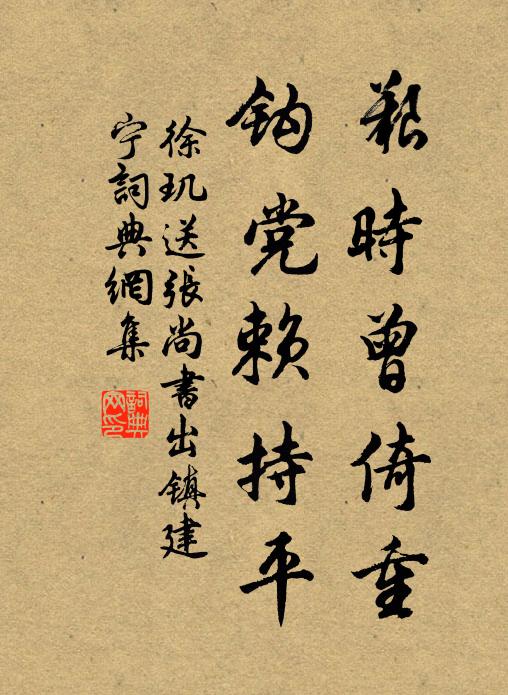 艱時曾倚重
鈎党賴持平
徐玑送張尚書出镇建
宁詞典網集
詞典
网印